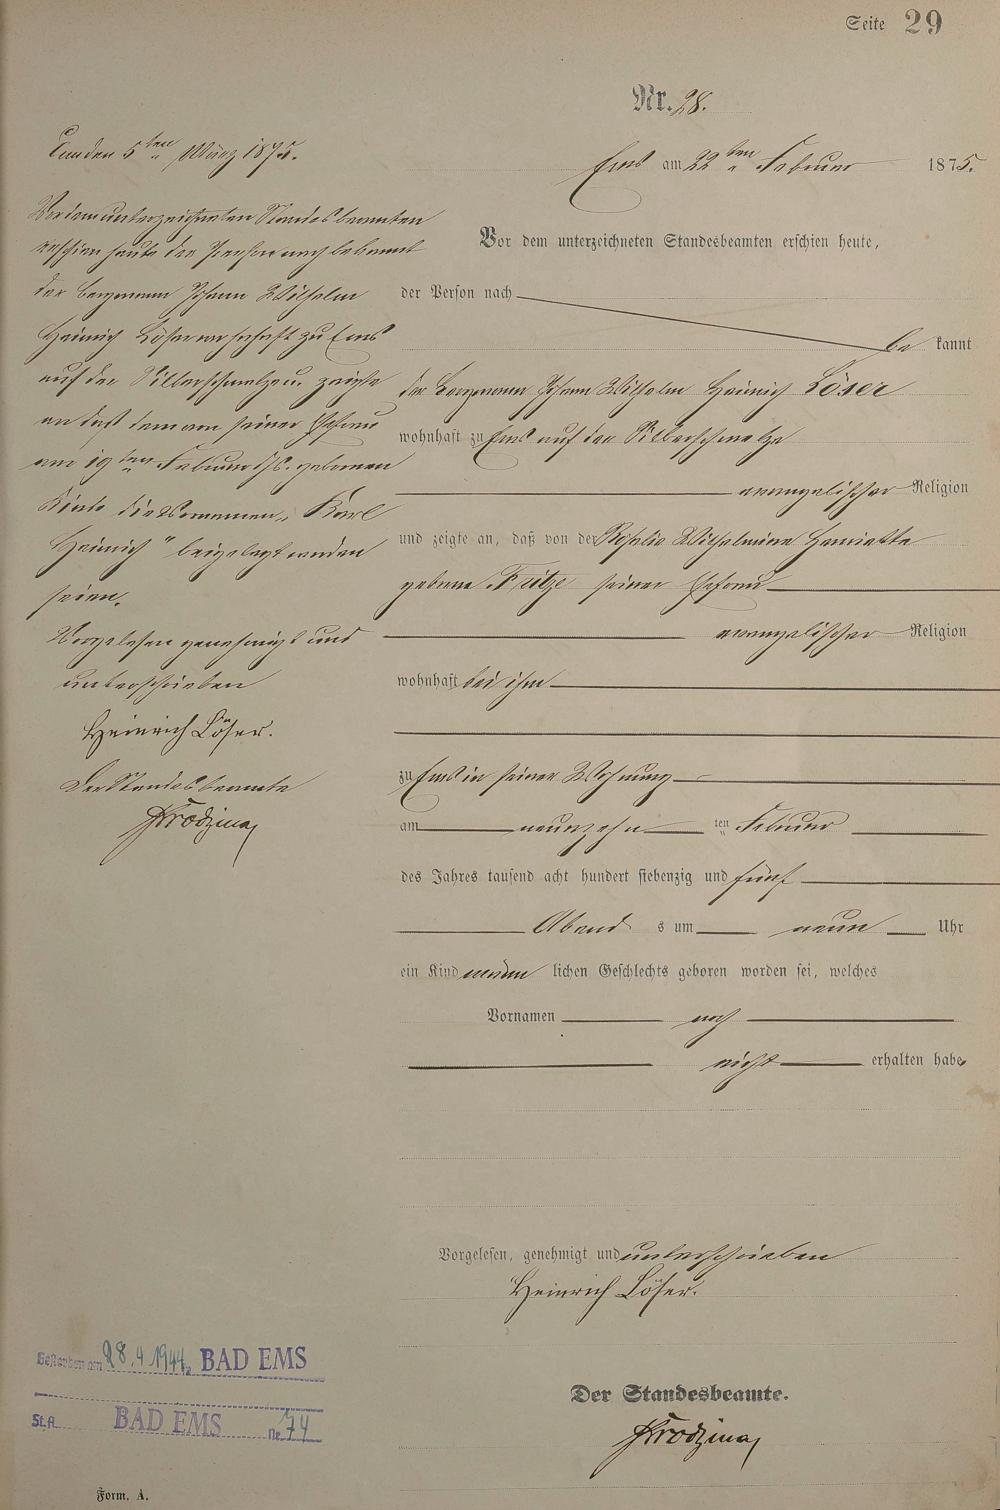 Seite 29
Nr. 28.
Ems am 22ten Februar 1875.
Vor dem unterzeichneten Standesbeamten erschien heute,
der Person nach
be kannt
der Bergmann Johann Wilhelm Heinrich Löser
wohnhaft zu Ems auf der Silberschmelze
evangelischer Religion
und zeigte an, daß von der Rosalie Wilhelmine Henriette
geborne Fritze seiner Ehefrau
evangelischer Religion
wohnhaft bei ihm
zu Ems in seiner Wohnung
am neunzehn ten Februar
des Jahres tausend acht hundert siebenzig und fünf
Abend s um neun Uhr
ein Kind männ lichen Geschlechts geboren worden sei, welches
Vornamen noch
nicht erhalten habe
Vorgelesen, genehmigt und unterschrieben
Heinrich Löser.
Der Standesbeamte.
Ems den 5ten März 1875.
Vor dem unterzeichneten Standesbeamten
erschien heute der Person nach bekannt
der Bergmann Johann Wilhelm
Heinrich Löser wohnhaft zu Ems
auf der Silberschmelze u. zeigte
an daß dem von seiner Ehefrau
am 19ten Februar d/s. gebornen
Kinde die Vornamen „Karl
Heinrich" beigelegt worden
seien.
Vorgelesen genehmigt und
unterschrieben
Heinrich Löser.
Der Standesbeamte
Gestorben am 28.4.1944 BAD EMS
St.A. BAD EMS Nr. 74
Form. A.